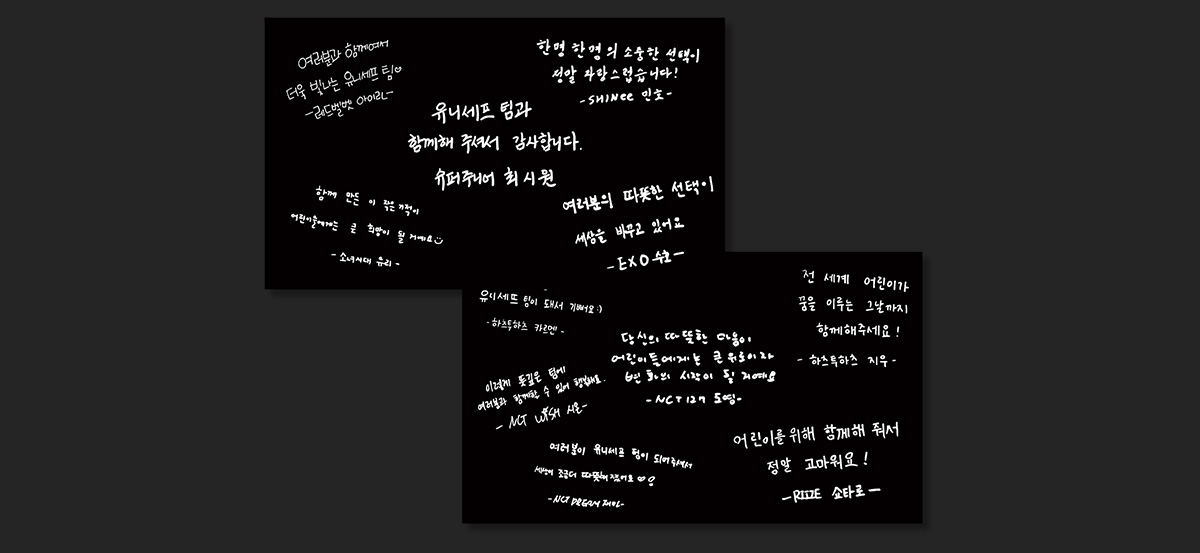 여러분과 함께여서
더욱 빛나는 유니세프 팀
-레드벨벳 아이린-
한명 한명의 소중한 선택이
정말 자랑스럽습니다!
-SHINee 민호-
유니세프 팀과
함께해 주셔서 감사합니다.
슈퍼주니어 최시원
함께 만든 이 작은 기적이
어린이들에게는 큰 희망이 될 거예요
-소녀시대 유리-
여러분의 따뜻한 선택이
세상을 바꾸고 있어요
-EXO 수호-
유니세프 팀이 돼서 기뻐요 :)
-하츠투하츠 카르멘-
당신의 따뜻한 마음이
어린이들에게는 큰 위로이자
변화의 시작이 될 거예요
-NCT 127 도영-
전 세계 어린이가
꿈을 이루는 그날까지
함께해주세요!
-하츠투하츠 지우-
이렇게 뜻깊은 팀에
여러분과 함께할 수 있어 행복해요.
-NCT WISH 시온-
여러분이 유니세프 팀이 되어주셔서
세상이 조금더 따뜻해졌어요
-NCT DREAM 재민-
어린이를 위해 함께해 줘서
정말 고마워요!
-RIIZE 쇼타로-